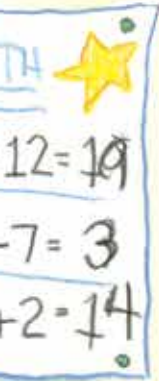 TH
12=19
-7=3
+2=14